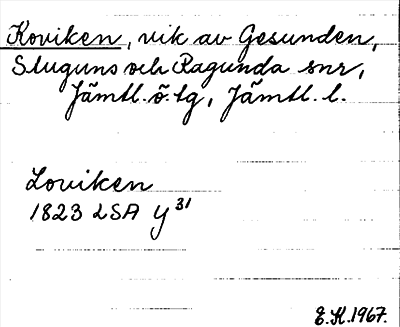 Koviken, vik av Gesunden,
Stuguns och Ragunda snr,
Jämtl. ö. tg, Jämtl. l.
Loviken
1823 LSA Y31
E.H.1967.